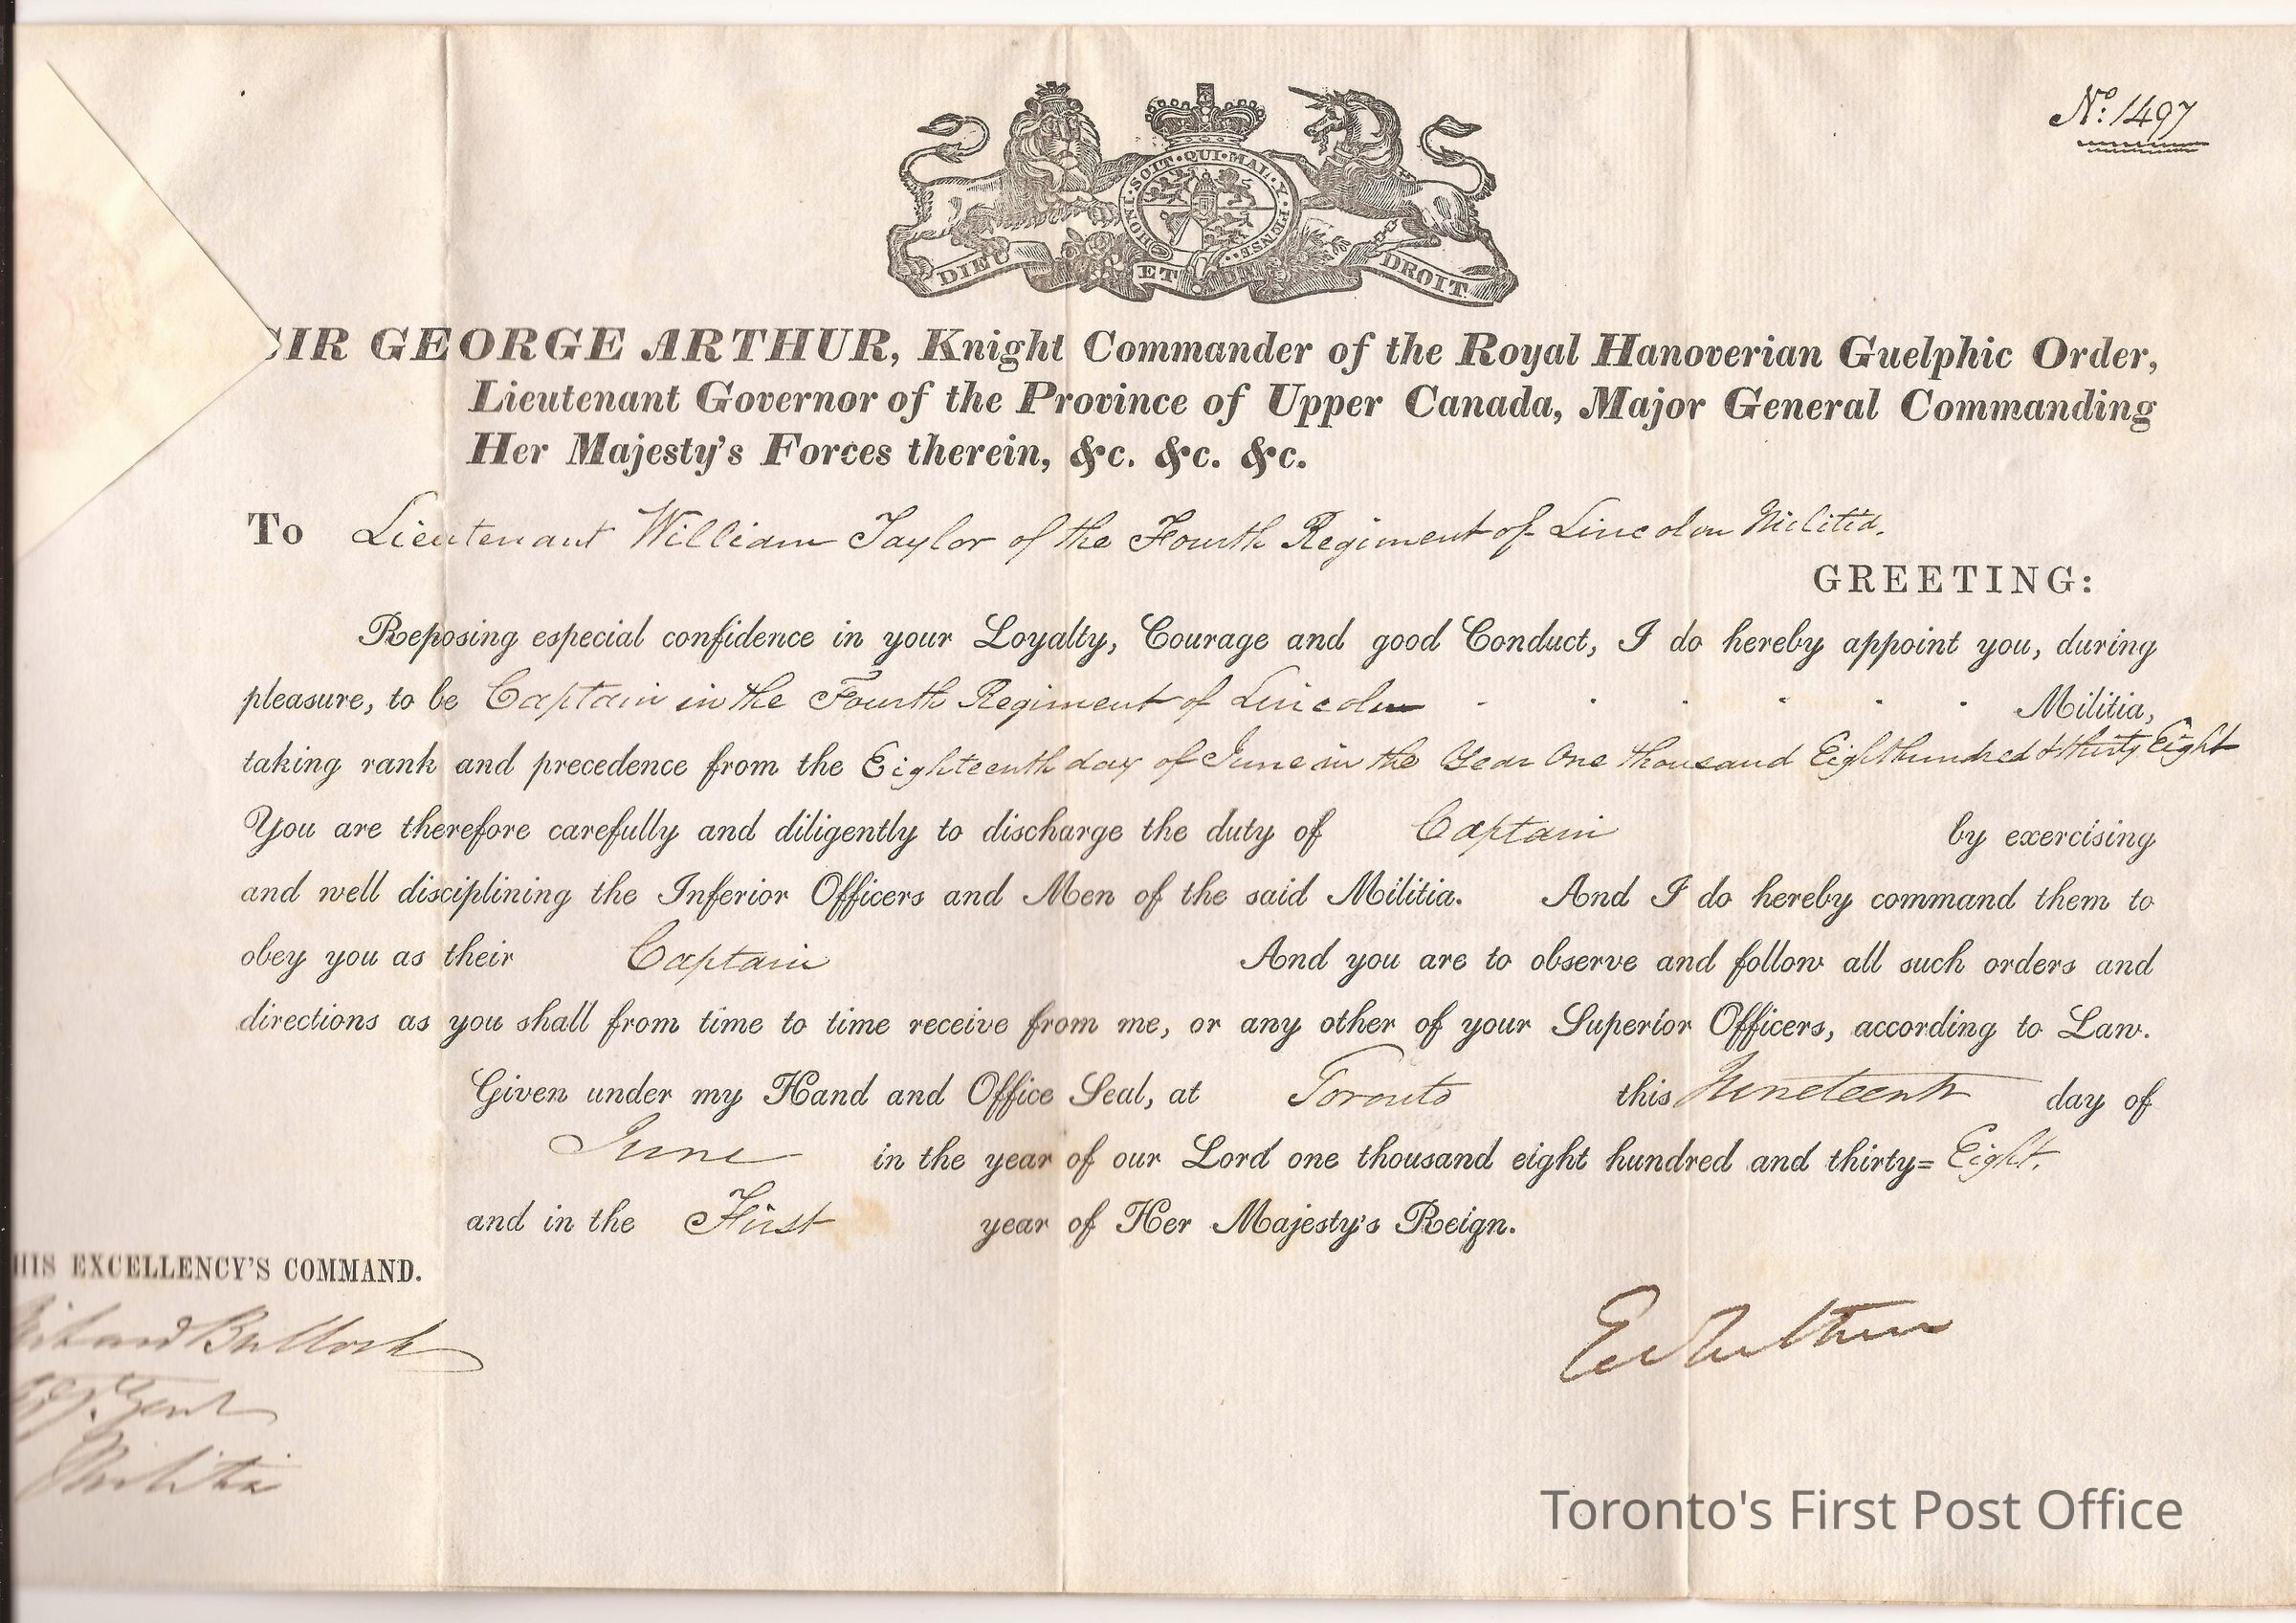 No. 1497
HONI·SOIT·QUI·MAL·Y·PENSE
DIEU ET DROIT
SIR GEORGE ARTHUR, Knight Commander of the Royal Hanoverian Guelphic Order,
Lieutenant Governor of the Province of Upper Canada, Major General Commanding
Her Majesty's Forces therein, &c. &c. &c.
To Lieutenant William Taylor of the Fourth Regiment of Lincoln Militia.
GREETING:
Reposing especial confidence in your Loyalty, Courage and good Conduct, I do hereby appoint you, during
pleasure, to be Captain in the Fourth Regiment of Lincoln - - - - - - Militia,
taking rank and precedence from the Eighteenth day of June in the Year One thousand Eight hundred & thirty Eight
You are therefore carefully and diligently to discharge the duty of Captain by exercising
and well disciplining the Inferior Officers and Men of the said Militia. And I do hereby command them to
obey you as their Captain And you are to observe and follow all such orders and
directions as you shall from time to time receive from me, or any other of your Superior Officers, according to Law.
Given under my Hand and Office Seal, at Toronto this Nineteenth day of
June in the year of our Lord one thousand eight hundred and thirty= Eight.
and in the First year of Her Majesty's Reign.
HIS EXCELLENCY'S COMMAND.
Richard Bullock
Genl
Militia
Geo Arthur
Toronto's First Post Office